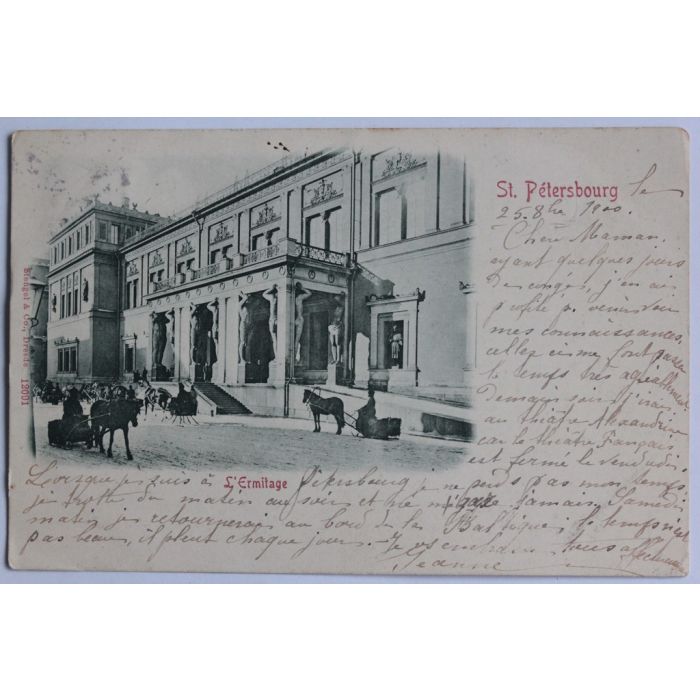 St. Pétersbourg le
25. 8bre 1900.
Chère Maman,
ayant quelques jours
de congés, j'en ai
profité p. venir voir
mes connaissances,
celles ci me font passer
le temps très agréablement
demain soir j'irai
au théâtre Alexandrine
car le théâtre Français
est fermé le vendredi
L'Ermitage
Lorsque je suis à Pétersbourg je ne perds pas mon temps,
je trotte du matin au soir et ne m' jamais. Samedi
matin je retournerai au bord de la Baltique, le temps n'est
pas beau, il pleut chaque jour. - Je vous embrasse tous
Jeanne
Stengel & Co., Dresde 12091